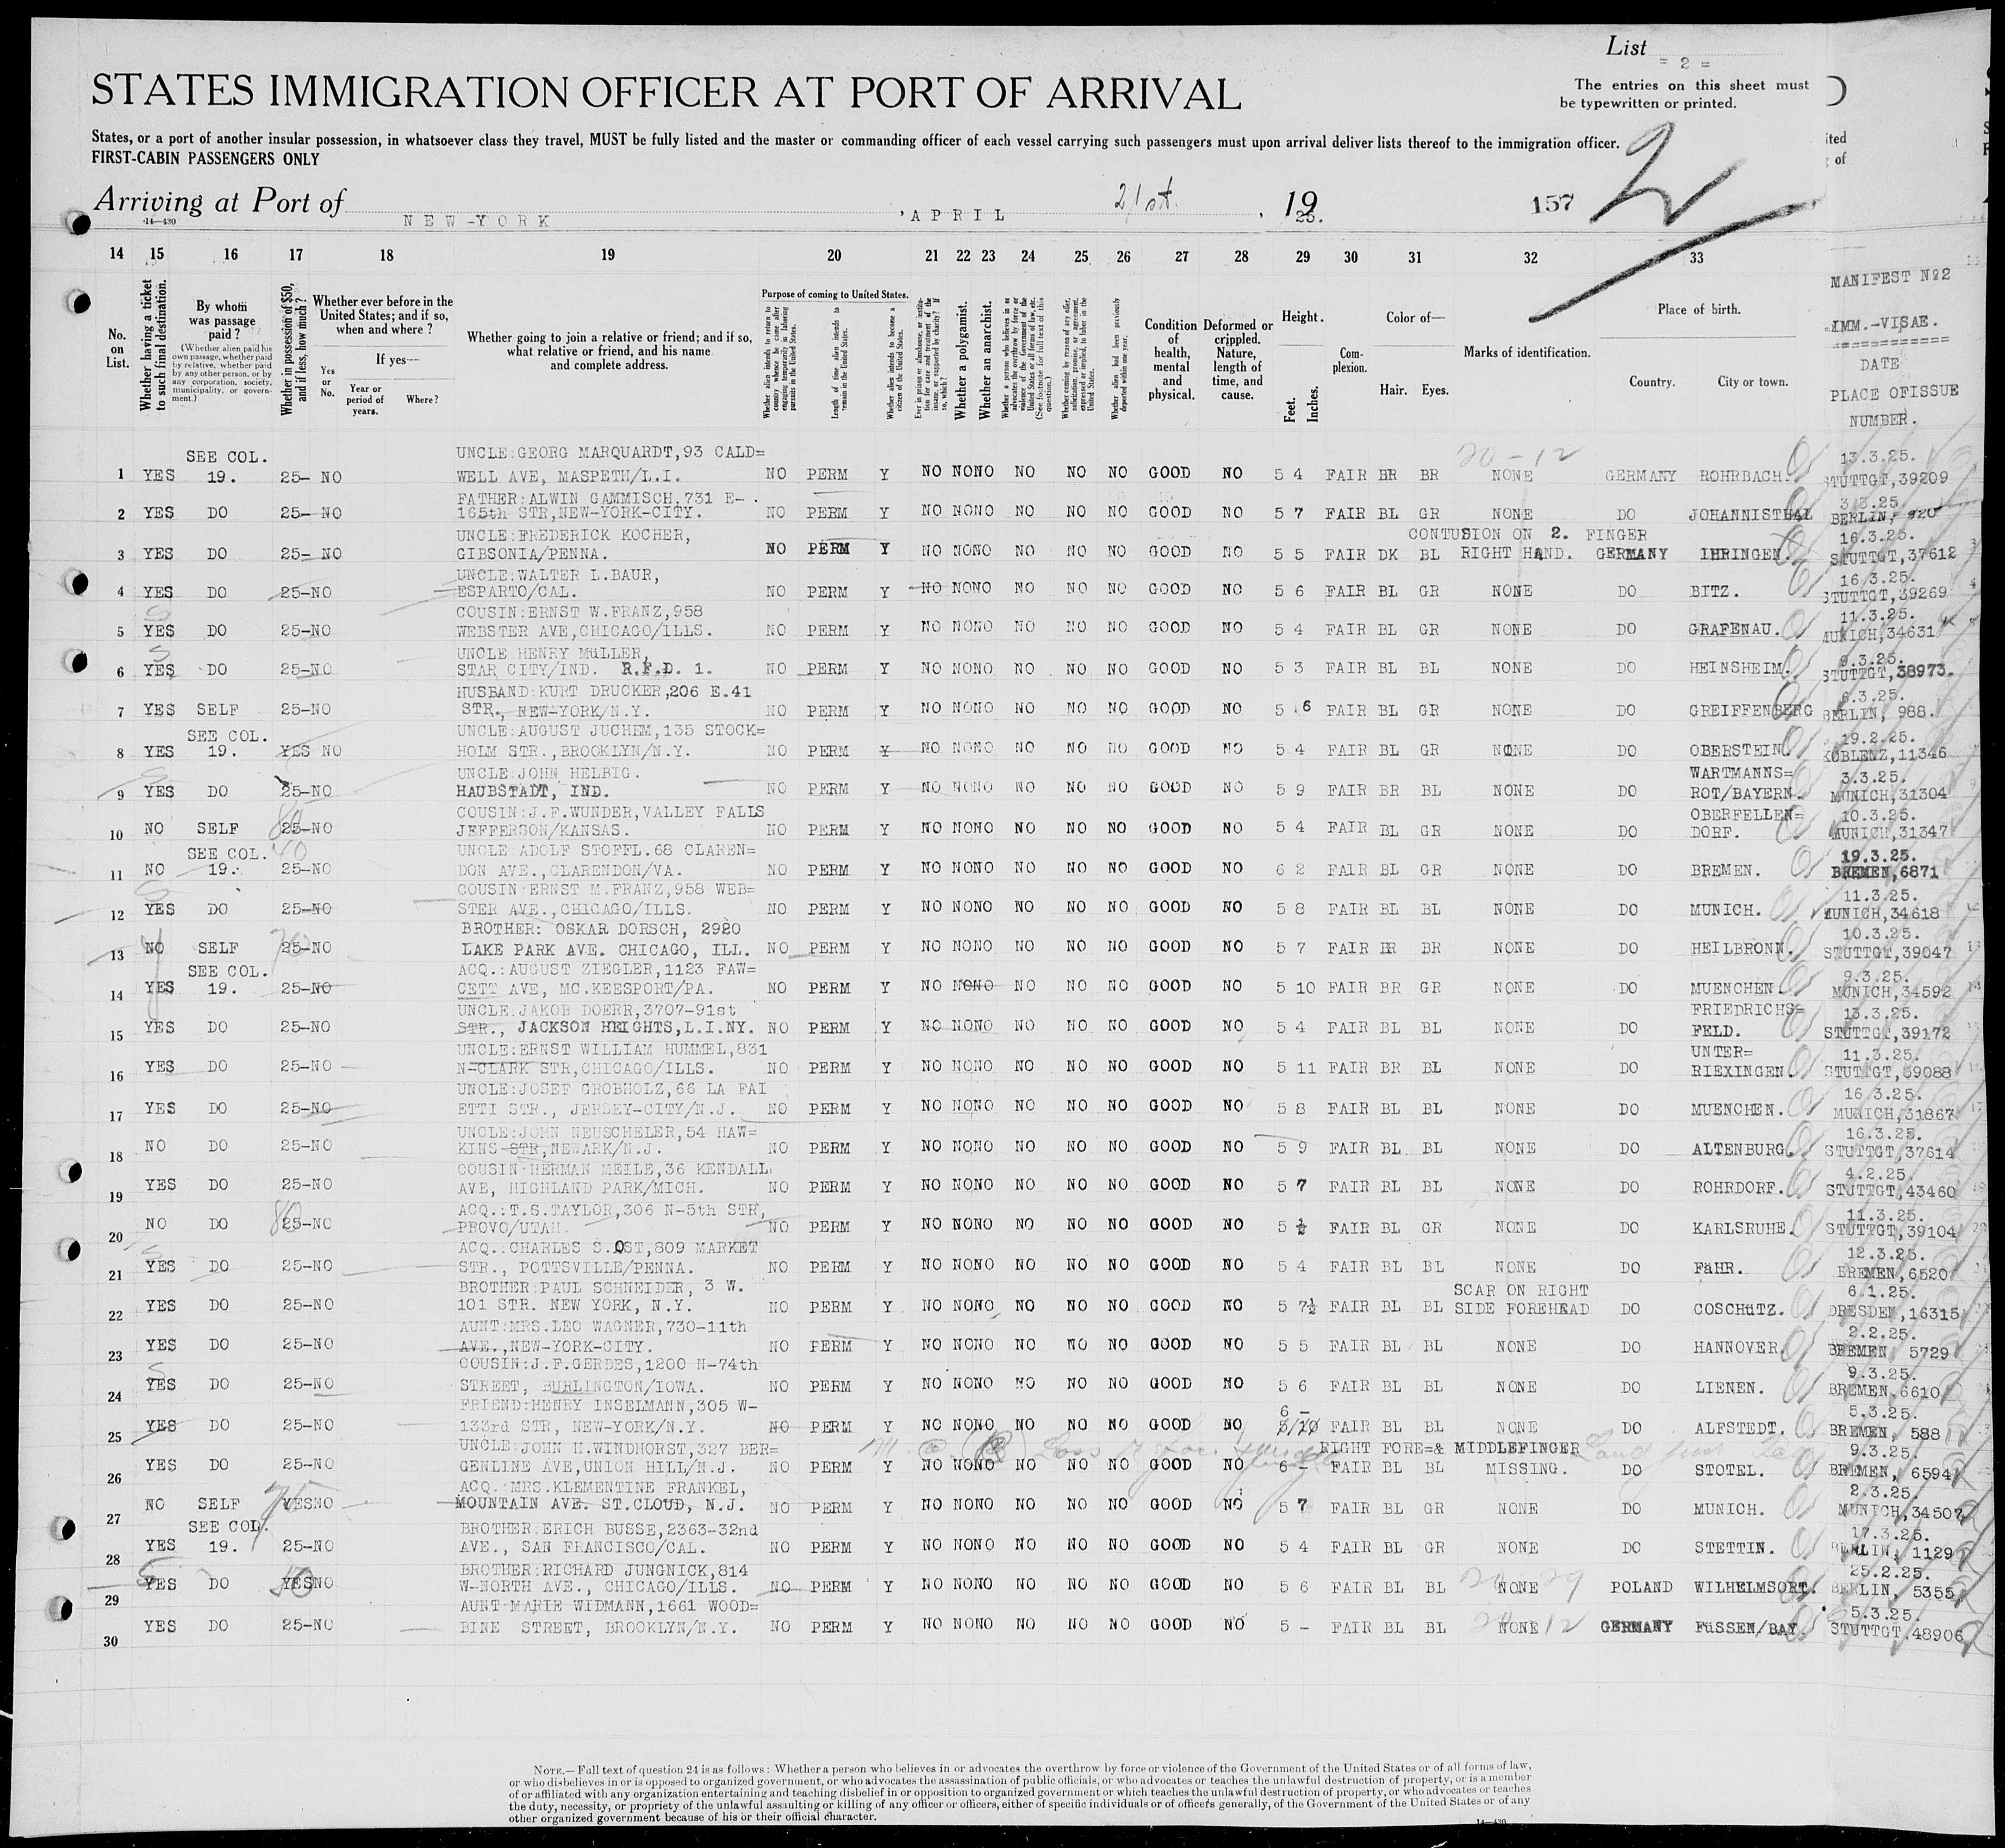 List
= 2 =
STATES IMMIGRATION OFFICER AT PORT OF ARRIVAL
The entries on this sheet must
be typewritten or printed.
States, or a port of another insular possession, in whatsoever class they travel, MUST be fully listed and the master or commanding officer of each vessel carrying such passengers must upon arrival deliver lists thereof to the immigration officer.
FIRST-CABIN PASSENGERS ONLY
ited
of
Arriving at Port of NEW-YORK , APRIL 21st. , 1925. 157 2
14—430
14 15 16 17 18 19 20 21 22 23 24 25 26 27 28 29 30 31 32 33
MANIFEST Nº2
IMM.-VISAE.
============
DATE
PLACE OF ISSUE
NUMBER.
No. on List.
Whether having a ticket to such final destination.
By whom was passage paid?
(Whether alien paid his own passage, whether paid by relative, whether paid by any other person, or by any corporation, society, municipality, or government.)
Whether in possession of $50, and if less, how much?
Whether ever before in the United States; and if so, when and where?
Yes or No.
If yes—
Year or period of years.
Where?
Whether going to join a relative or friend; and if so, what relative or friend, and his name and complete address.
Purpose of coming to United States.
Whether alien intends to return to country whence he came after engaging temporarily in laboring pursuits in the United States.
Length of time alien intends to remain in the United States.
Whether alien intends to become a citizen of the United States.
Whether a polygamist.
Whether an anarchist.
Condition of health, mental and physical.
Deformed or crippled. Nature, length of time, and cause.
Height.
Feet. Inches.
Complexion.
Color of—
Hair. Eyes.
Marks of identification.
Place of birth.
Country. City or town.
SEE COL. UNCLE:GEORG MARQUARDT,93 CALD= 20-12 13.3.25.
1 YES 19. 25- NO WELL AVE, MASPETH/L.I. NO PERM Y NO NONO NO NO NO GOOD NO 5 4 FAIR BR BR NONE GERMANY ROHRBACH. STUTTGT,39209
FATHER:ALWIN GAMMISCH,731 E- . 3.3.25.
2 YES DO 25- NO 165th STR,NEW-YORK-CITY. NO PERM Y NO NONO NO NO NO GOOD NO 5 7 FAIR BL GR NONE DO JOHANNISTHAL BERLIN, 920
UNCLE:FREDERICK KOCHER, CONTUSION ON 2. FINGER 16.3.25.
3 YES DO 25- NO GIBSONIA/PENNA. NO PERM Y NO NONO NO NO NO GOOD NO 5 5 FAIR DK BL RIGHT HAND. GERMANY IHRINGEN. STUTTGT,37612
UNCLE:WALTER L.BAUR, 16.3.25.
4 YES DO 25-NO ESPARTO/CAL. NO PERM Y NO NONO NO NO NO GOOD NO 5 6 FAIR BL GR NONE DO BITZ. STUTTGT,39269
COUSIN:ERNST W.FRANZ,958 11.3.25.
5 YES DO 25-NO WEBSTER AVE,CHICAGO/ILLS. NO PERM Y NO NONO NO NO NO GOOD NO 5 4 FAIR BL GR NONE DO GRAFENAU. MUNICH,34631
UNCLE HENRY MüLLER, 9.3.25.
6 YES DO 25-NO STAR CITY/IND. R.F.D. 1. NO PERM Y NO NONO NO NO NO GOOD NO 5 3 FAIR BL BL NONE DO HEINSHEIM. STUTTGT,38973.
HUSBAND:KURT DRUCKER,206 E.41 6.3.25.
7 YES SELF 25-NO STR., NEW-YORK/N.Y. NO PERM Y NO NONO NO NO NO GOOD NO 5 6 FAIR BL GR NONE DO GREIFFENBERG BERLIN, 988.
SEE COL. UNCLE:AUGUST JUCHEM,135 STOCK= 19.2.25.
8 YES 19. YES NO HOLM STR.,BROOKLYN/N.Y. NO PERM Y NO NONO NO NO NO GOOD NO 5 4 FAIR BL GR NONE DO OBERSTEIN. KOBLENZ,11346
UNCLE:JOHN HELBIG. WARTMANNS= 3.3.25.
9 YES DO 25-NO HAUBSTADT, IND. NO PERM Y NO NONO NO NO NO GOOD NO 5 9 FAIR BR BL NONE DO ROT/BAYERN. MUNICH,31304
COUSIN:J.F.WUNDER,VALLEY FALLS OBERFELLEN= 10.3.25.
10 NO SELF 25-NO JEFFERSON/KANSAS. NO PERM Y NO NONO NO NO NO GOOD NO 5 4 FAIR BL GR NONE DO DORF. MUNICH,31347
SEE COL. 40 UNCLE:ADOLF STOFFL.68 CLAREN= 19.3.25.
11 NO 19. 25-NO DON AVE.,CLARENDON/VA. NO PERM Y NO NONO NO NO NO GOOD NO 6 2 FAIR BL GR NONE DO BREMEN. BREMEN,6871
COUSIN ERNST M.FRANZ,958 WEB= 11.3.25.
12 YES DO 25-NO STER AVE.,CHICAGO/ILLS. NO PERM Y NO NONO NO NO NO GOOD NO 5 8 FAIR BL BL NONE DO MUNICH. MUNICH,34618
BROTHER: OSKAR DORSCH, 2920 10.3.25.
13 NO SELF 25-NO LAKE PARK AVE. CHICAGO, ILL. NO PERM Y NO NONO NO NO NO GOOD NO 5 7 FAIR BR BR NONE DO HEILBRONN. STUTTGT,39047
SEE COL. ACQ.:AUGUST ZIEGLER,1123 FAW= 9.3.25.
14 YES 19. 25-NO CETT AVE, MC.KEESPORT/PA. NO PERM Y NO NONO NO NO NO GOOD NO 5 10 FAIR BR GR NONE DO MUENCHEN. MUNICH,34592
UNCLE:JAKOB DOERR,3707-91st FRIEDRICHS= 13.3.25.
15 YES DO 25-NO STR., JACKSON HEIGHTS,L.I.NY. NO PERM Y NO NONO NO NO NO GOOD NO 5 4 FAIR BL BL NONE DO FELD. STUTTGT,39172
UNCLE:ERNST WILLIAM HUMMEL,831 UNTER= 11.3.25.
16 YES DO 25-NO N-CLARK STR,CHICAGO/ILLS. NO PERM Y NO NONO NO NO NO GOOD NO 5 11 FAIR BR BL NONE DO RIEXINGEN. STUTTGT,39088
UNCLE:JOSEF GROBHOLZ,66 LA FAI 16.3.25.
17 YES DO 25-NO ETTI STR., JERSEY-CITY/N.J. NO PERM Y NO NONO NO NO NO GOOD NO 5 8 FAIR BL BL NONE DO MUENCHEN. MUNICH,31867
UNCLE:JOHN NEUSCHELER,54 HAW= 16.3.25.
18 NO DO 25-NO KINS-STR,NEWARK/N.J. NO PERM Y NO NONO NO NO NO GOOD NO 5 9 FAIR BL BL NONE DO ALTENBURG. STUTTGT,37614
COUSIN HERMAN MEILE,36 KENDALL 4.2.25.
19 YES DO 25-NO AVE, HIGHLAND PARK/MICH. NO PERM Y NO NONO NO NO NO GOOD NO 5 7 FAIR BL BL NONE DO ROHRDORF. STUTTGT,43460
ACQ.:T.S.TAYLOR,306 N-5th STR, 11.3.25.
20 NO DO 25-NO PROVO/UTAH. NO PERM Y NO NONO NO NO NO GOOD NO 5 ½ FAIR BL GR NONE DO KARLSRUHE. STUTTGT,39104
ACQ.:CHARLES S.OST,809 MARKET 12.3.25.
21 YES DO 25-NO STR., POTTSVILLE/PENNA. NO PERM Y NO NONO NO NO NO GOOD NO 5 4 FAIR BL BL NONE DO FäHR. BREMEN,6520
BROTHER:PAUL SCHNEIDER, 3 W. SCAR ON RIGHT 6.1.25.
22 YES DO 25-NO 101 STR. NEW YORK, N.Y. NO PERM Y NO NONO NO NO NO GOOD NO 5 7½ FAIR BL BL SIDE FOREHEAD DO COSCHüTZ. DRESDEN,16315
AUNT:MRS.LEO WAGNER,730-11th 2.2.25.
23 YES DO 25-NO AVE.,NEW-YORK-CITY. NO PERM Y NO NONO NO NO NO GOOD NO 5 5 FAIR BL BL NONE DO HANNOVER. BREMEN 5729
COUSIN:J.F.GERDES,1200 N-74th 9.3.25.
24 YES DO 25-NO STREET, BURLINGTON/IOWA. NO PERM Y NO NONO NO NO NO GOOD NO 5 6 FAIR BL BL NONE DO LIENEN. BREMEN.6610
FRIEND:HENRY INSELMANN,305 W- 6 - 5.3.25.
25 YES DO 25-NO 133rd STR, NEW-YORK/N.Y. NO PERM Y NO NONO NO NO NO GOOD NO 5/10 FAIR BL BL NONE DO ALFSTEDT. BREMEN, 588
UNCLE JOHN H.WINDHORST,327 BER= RIGHT FORE=& MIDDLEFINGER 9.3.25.
26 YES DO 25-NO GENLINE AVE,UNION HILL/N.J. NO PERM Y NO NONO NO NO NO GOOD NO 6 - FAIR BL BL MISSING. DO STOTEL. BREMEN, 6594
ACQ.:MRS.KLEMENTINE FRANKEL, 2.3.25.
27 NO SELF YESNO MOUNTAIN AVE. ST.CLOUD, N.J. NO PERM Y NO NONO NO NO NO GOOD NO 5 7 FAIR BL GR NONE DO MUNICH. MUNICH,34507
SEE COL. BROTHER ERICH BUSSE,2363-32nd 17.3.25.
28 YES 19. 25-NO AVE., SAN FRANCISCO/CAL. NO PERM Y NO NONO NO NO NO GOOD NO 5 4 FAIR BL GR NONE DO STETTIN. BERLIN, 1129
BROTHER:RICHARD JUNGNICK,814 25.2.25.
29 YES DO YESNO W-NORTH AVE., CHICAGO/ILLS. NO PERM Y NO NONO NO NO NO GOOD NO 5 6 FAIR BL BL NONE POLAND WILHELMSORT. BERLIN. 5355
AUNT MARIE WIDMANN,1661 WOOD= 5.3.25.
30 YES DO 25-NO BINE STREET, BROOKLYN/N.Y. NO PERM Y NO NONO NO NO NO GOOD NO 5 - FAIR BL BL NONE GERMANY FüSSEN/BAY. STUTTGT.48906
NOTE.—Full text of question 24 is as follows: Whether a person who believes in or advocates the overthrow by force or violence of the Government of the United States or of all forms of law,
or who disbelieves in or is opposed to organized government, or who advocates the assassination of public officials, or who advocates or teaches the unlawful destruction of property, or is a member
of or affiliated with any organization entertaining and teaching disbelief in or opposition to organized government or which teaches the unlawful destruction of property, or who advocates or teaches
the duty, necessity, or propriety of the unlawful assaulting or killing of any officer or officers, either of specific individuals or of officers generally, of the Government of the United States or of any
other organized government because of his or their official character.
14—430